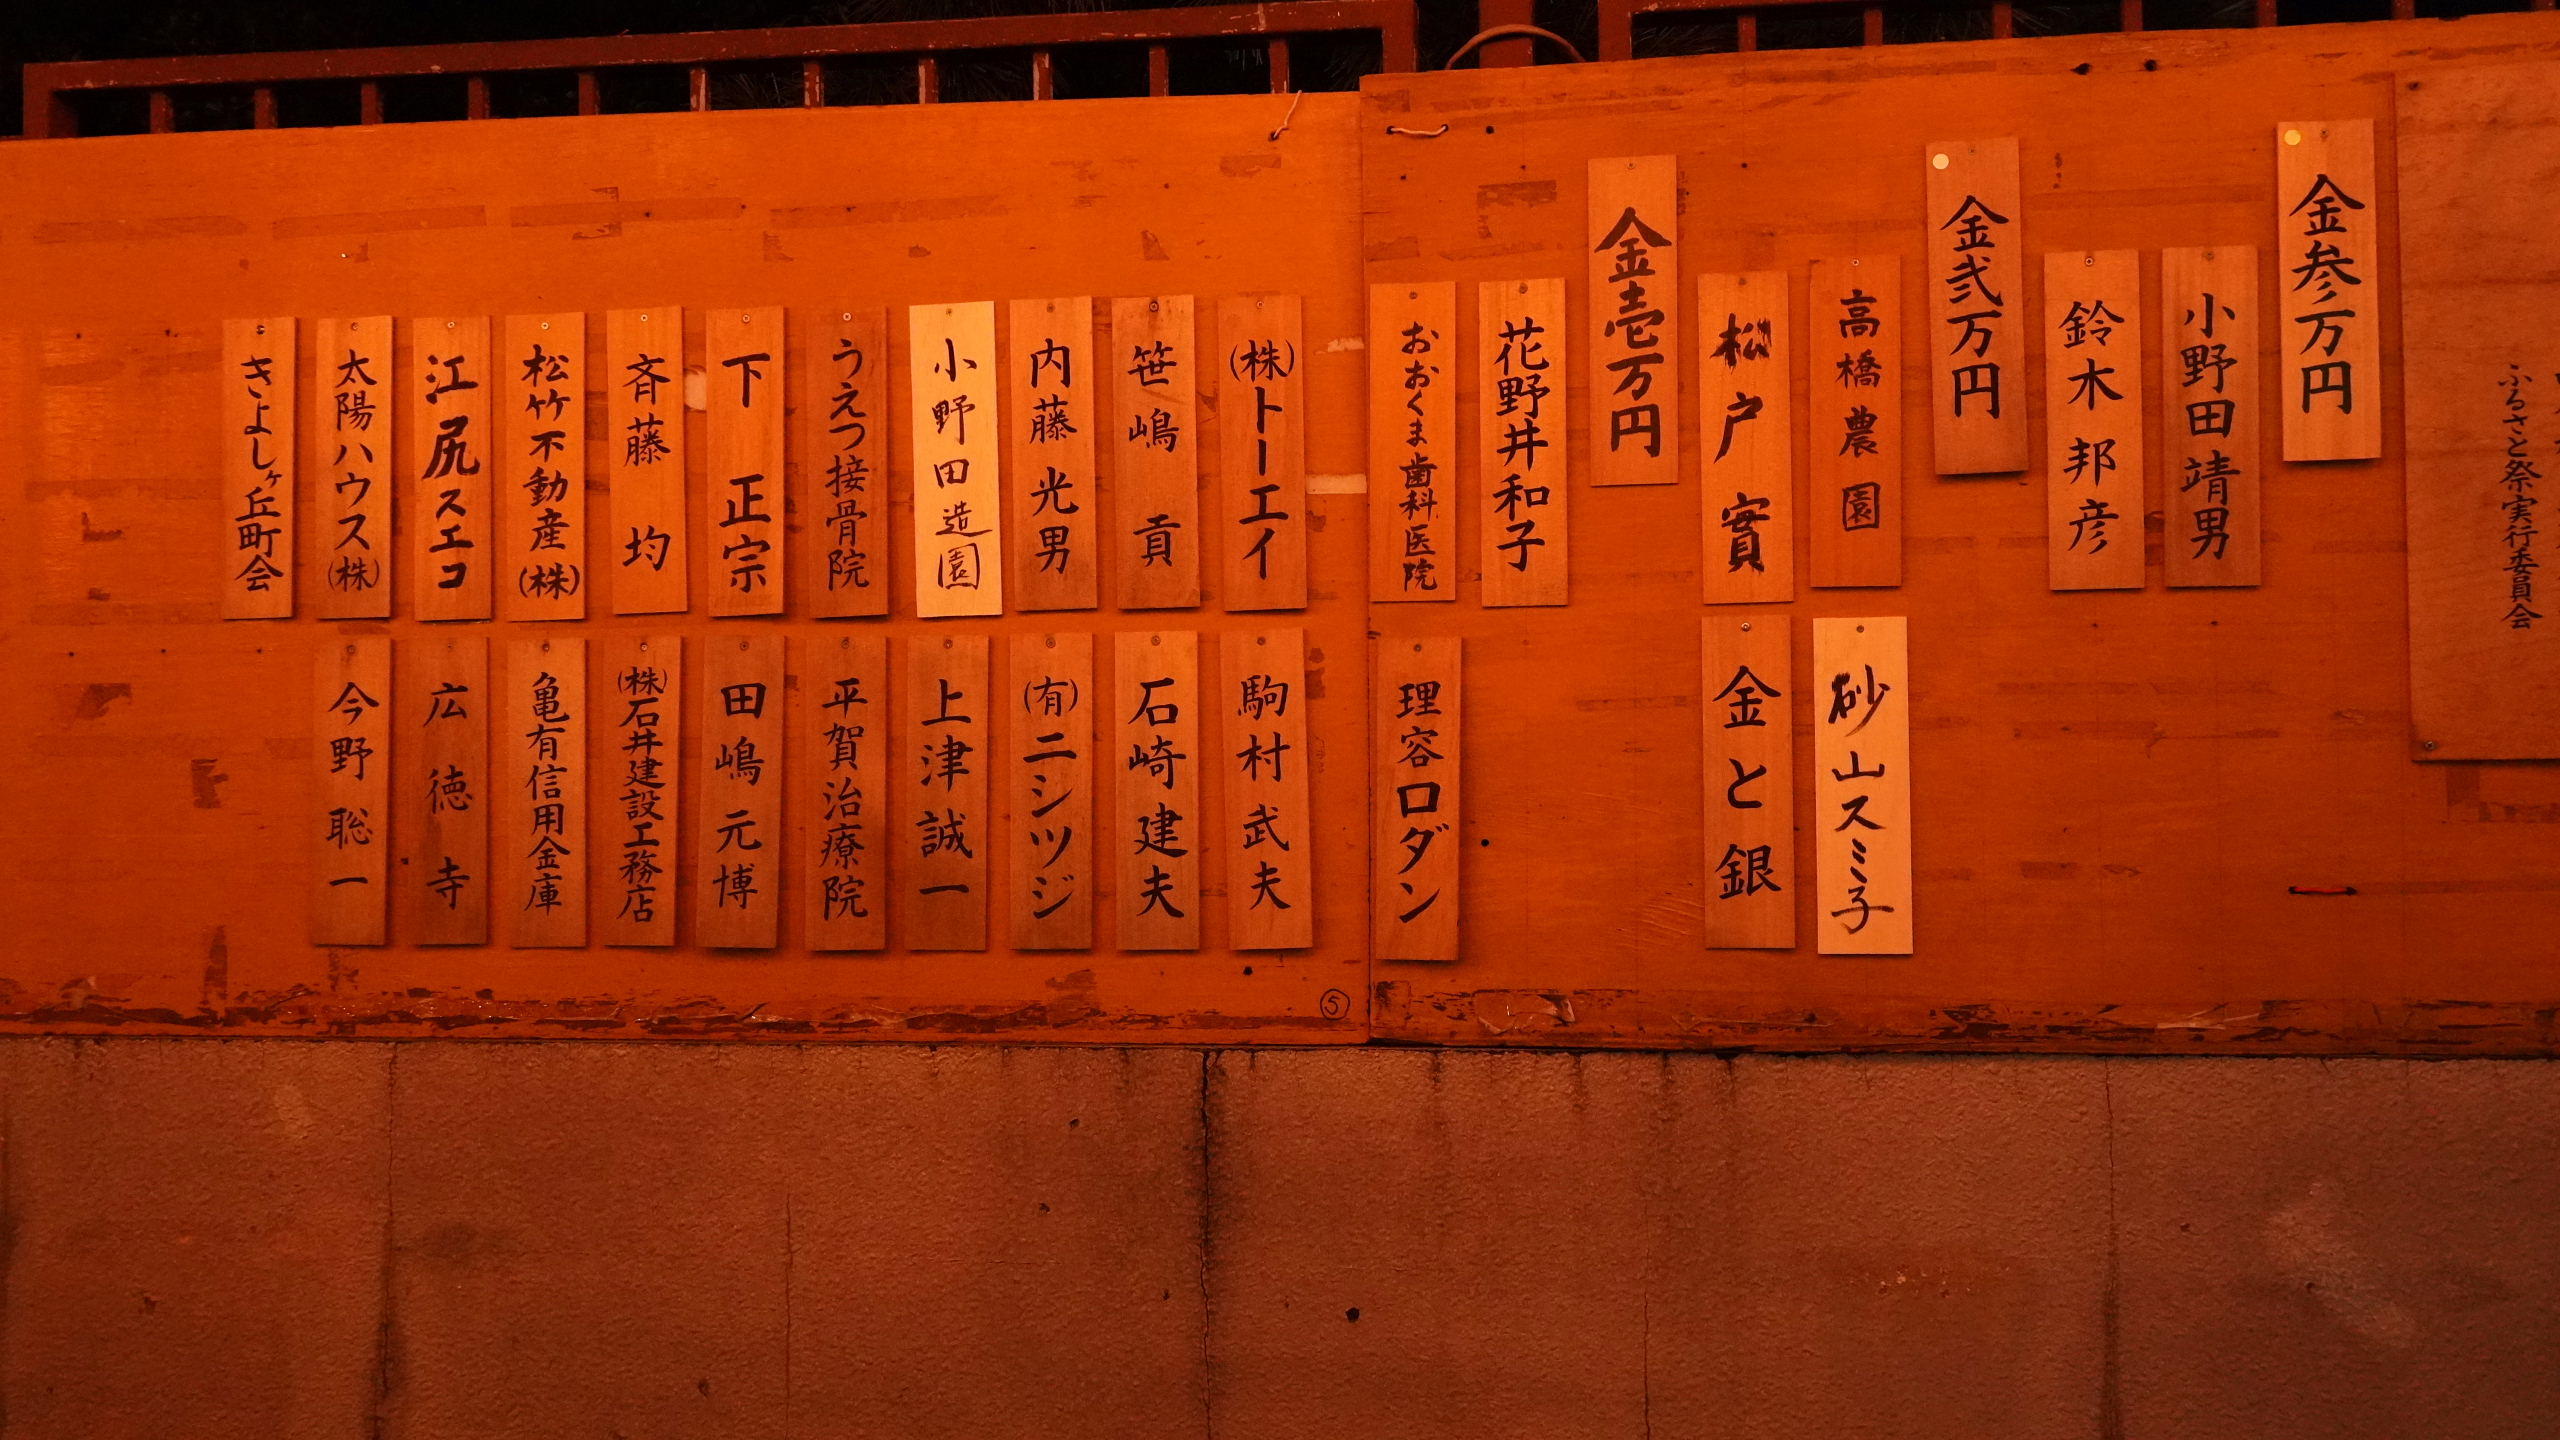 ふるさと祭実行委員会
金参万円
小野田靖男
鈴木邦彦
金弐万円
高橋農園
砂山スミ子
松戸實
金と銀
金壱万円
花野井和子
おおくま歯科医院
理容ロダン
(株)トーエイ
駒村武夫
笹嶋貢
石崎建夫
内藤光男
(有)ニシツジ
小野田造園
上津誠一
うえつ接骨院
平賀治療院
下正宗
田嶋元博
斉藤均
(株)石井建設工務店
松竹不動産(株)
亀有信用金庫
江尻スエコ
広徳寺
太陽ハウス(株)
今野聡一
きよしヶ丘町会
⑤